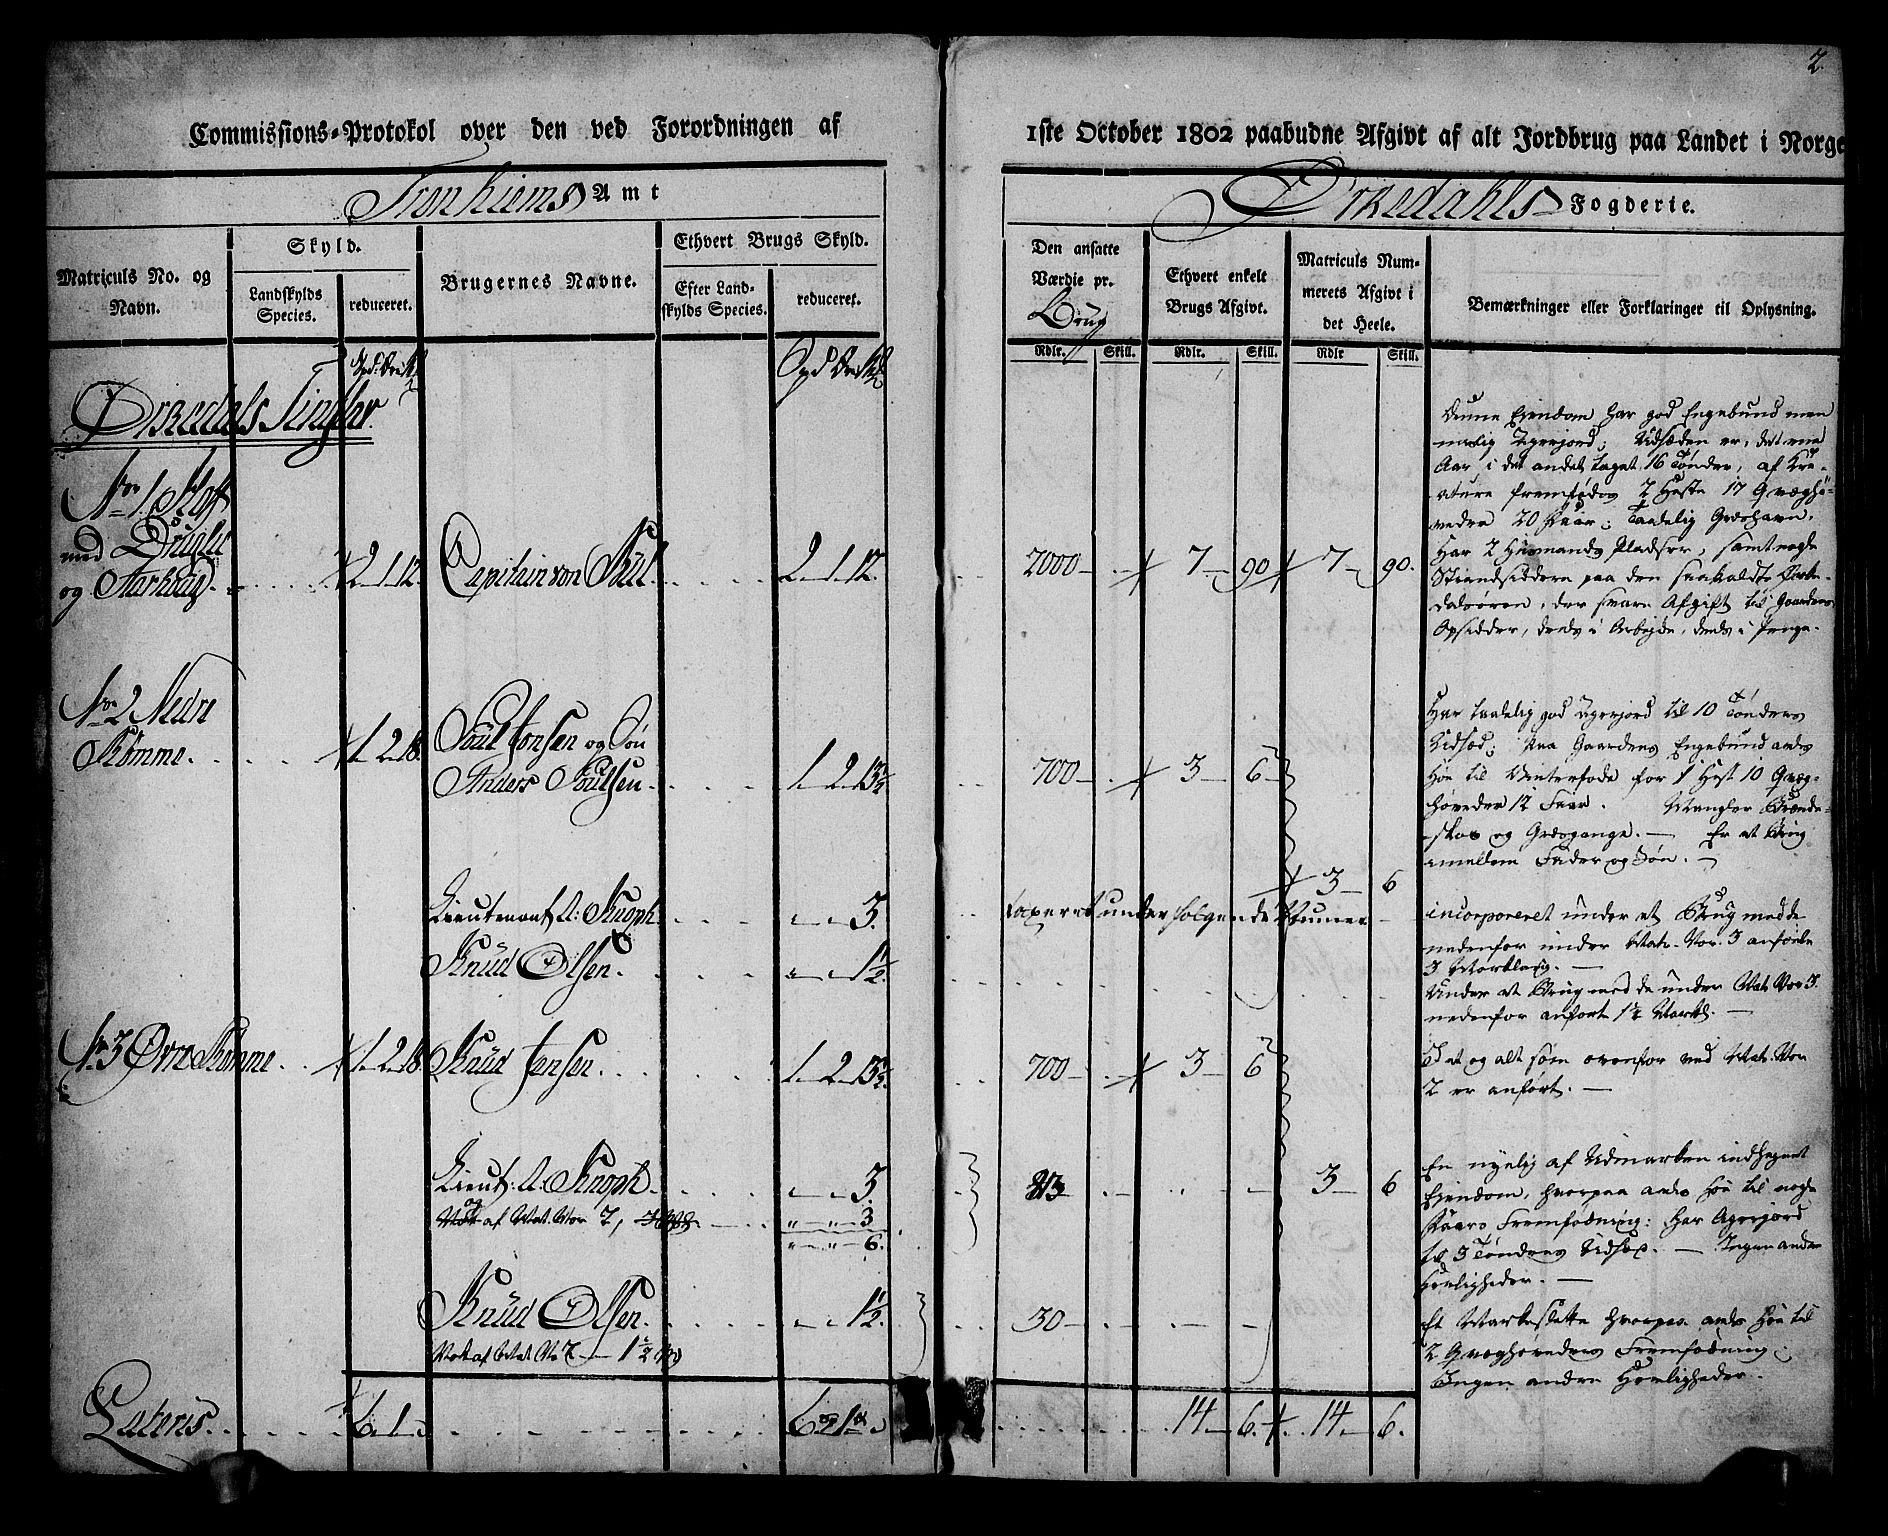 2.
Commissions-Protokol over den ved Forordningen af
1ste October 1802 paabudne Afgivt af alt Jordbrug paa Landet i Norge
Tronhiems Amt
Ørkedahls Fogderie.
Matriculs No. og Navn.
Skyld.
Landskylds Species.
reduceret.
Brugernes Navne.
Ethvert Brugs Skyld.
Efter Landskylds Species.
reduceret.
Den ansatte Værdie pr.
Brug
Ethvert enkelt Brugs Afgivt.
Matriculs Nummerets Afgivt i det Heele.
Bemærkninger eller Forklaringer til Oplysning.
Rdlr. Skill. Rdlr. Skill. Rdlr Skill.
Ørkedals Tinglav
No 1.
med
og 2. 1. 12. Capitain von 2. 1. 12. 2000 7 90 7 90.
Denne Ejendom har god Engebund men
maalig Agerjord; Udsæden er, det ene
Aar i det andet taget 16 Tønder, af Kre-
ature fremfødes 2 Heste 17 Qvæghø-
veder 20 Faar; Taalelig Græshavn,
Har 2 Huusmands Pladser, samt nogle
Strandsiddere paa den saakaldte Ørke-
dalsøren, der svare Afgift til Gaardens
Opsidder, deels i Arbejde, deels i Penge.
No 2 Nedre
Rømme 1. 2. 18. Poul Jonsen og Søn
Anders Poulsen 1. 2. 13½ 700 3 6
Har taalelig god Agerjord til 10 Tønders
Udsæd; Paa Gaardens Engebund avles
Høe til Vinterfode for 1 Hest 10 Qvæg-
høveder 12 Faar. Mangler Brænde-
skov og Græsgange. Er et Brug
imellem Fader og Søn.
3 6
Lieutenant A: Knoph 3. taxeret under følgende Numer
incorporeret under et Brug med de
nedenfor under Mat. No. 3 anførte
3 Marklaug.
Knud Olsen. 1½
Under et Brug med de under Mat No 3.
nedenfor anført 1½ Markl.
No 3 Øvre Rømme 1. 2. 18 Knud Jensen 1. 2. 13½ 700 3 6
Et og alt som ovenfor ved Mat. No
2 er anført.
Lieut: A. Knoph. 3. 3 6
og af Mat. No 2, 3
6.
En nyelig af Udmarken indhegnet
Ejendom, hvorpaa avles Høe til nogle
Faars Fremfødning; har Agerjord
til 3 Tønders Udsæd. Ingen andre
Herligheder.
Knud Olsen. 1½ 30
af Mat No 2 1½
Et Markeslette hvorpaa avles Høe til
2 Qvæghøveders Fremfødning;
Ingen andre Herligheder.
Lateris. 6. 1. 6 1 14 6. 14 6.